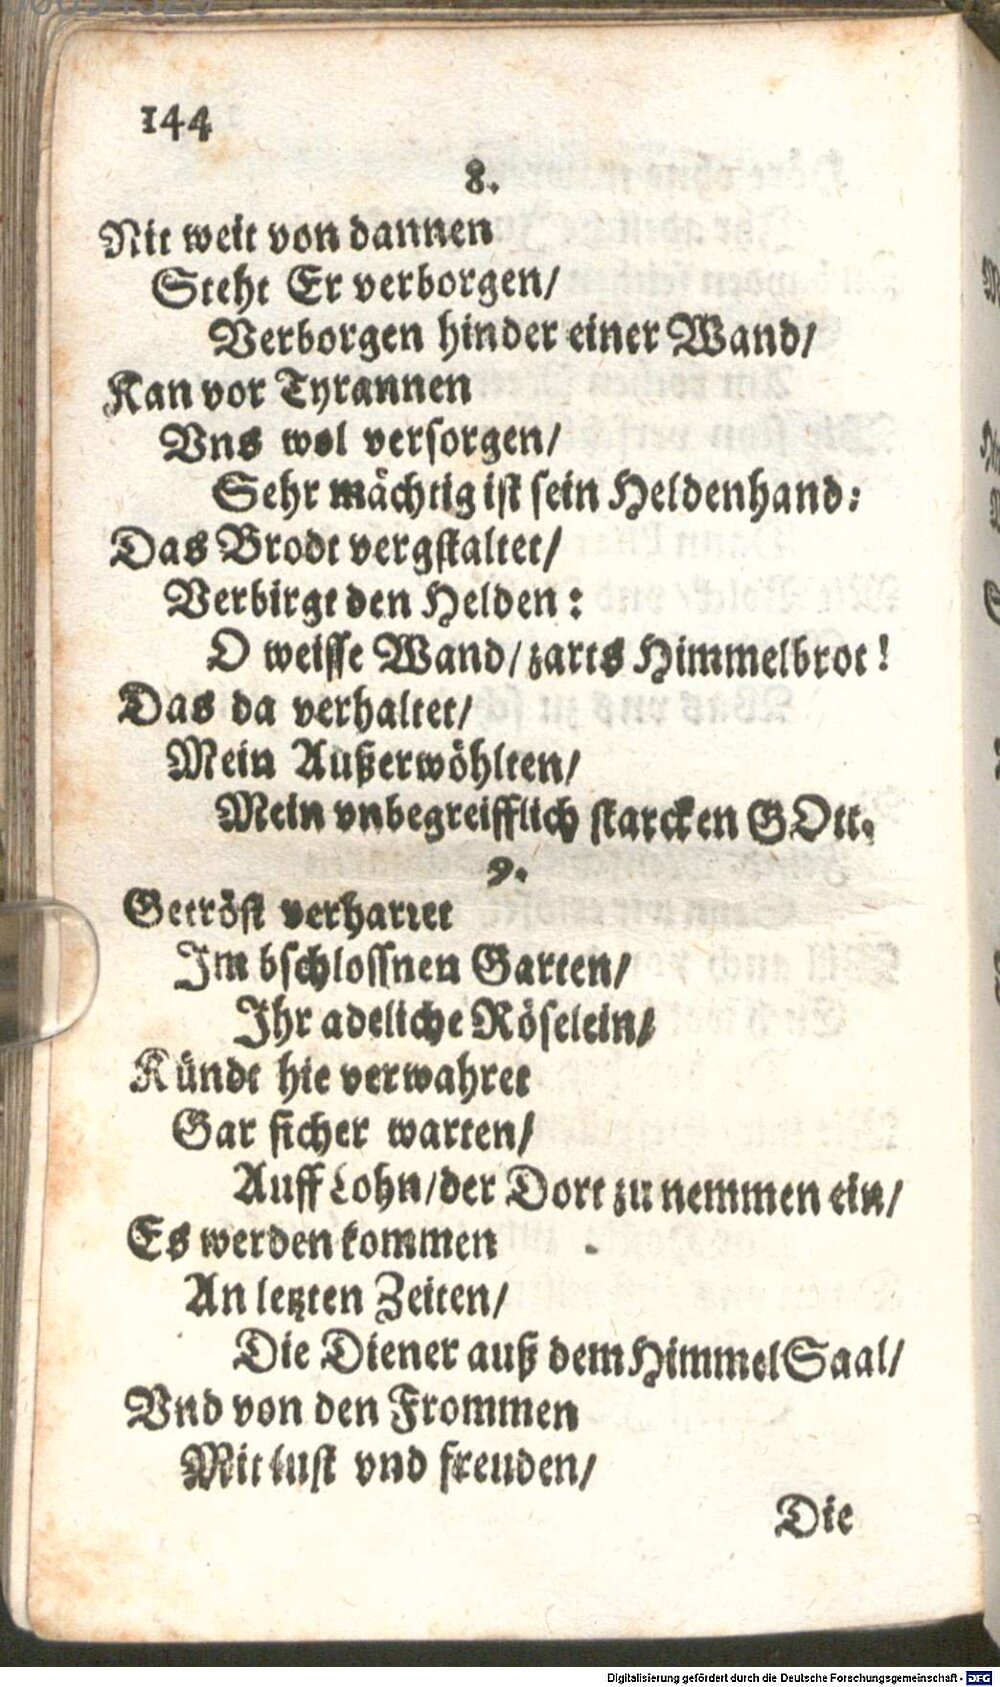 144
8.
Nit weit von dannen
Steht Er verborgen/
Verborgen hinder einer Wand/
Kan vor Tyrannen
Vns wol versorgen/
Sehr mächtig ist sein Heldenhand:
Das Brodt vergstaltet/
Verbirgt den Helden:
O weisse Wand/ zarts Himmelbrot!
Das da verhaltet/
Mein Außerwöhlten/
Mein vnbegreifflich starcken GOtt.
9.
Getröst verharret
Im bschlossnen Garten/
Ihr adeliche Röselein/
Kündt hie verwahret
Gar sicher warten/
Auff Lohn/ der Dort zu nemmen ein/
Es werden kommen
An letzten Zeiten/
Die Diener auß dem Himmel Saal/
Vnd von den Frommen
Mit lust vnd freuden/
Die
Digitalisierung gefördert durch die Deutsche Forschungsgemeinschaft - DFG